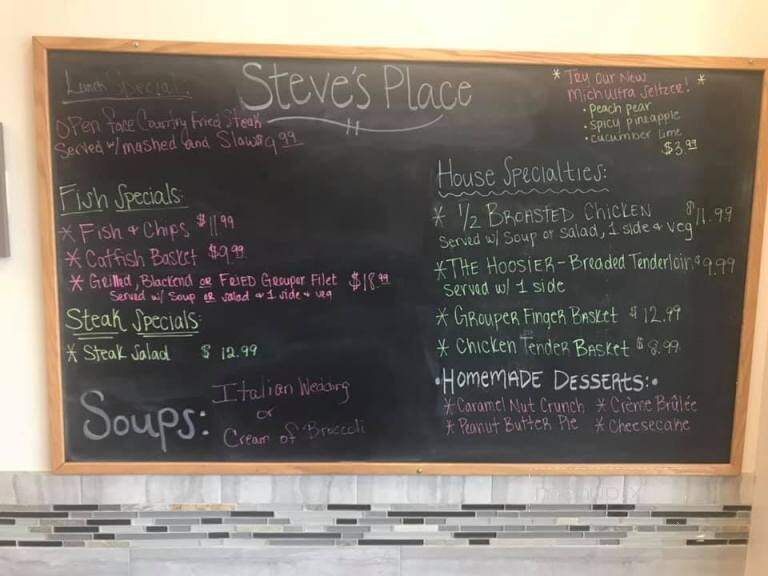 Steve's Place
Lunch Special:
Open face Country Fried Steak
Served w/ mashed and Slaw $9.99
Fish Specials:
* Fish & Chips $11.99
* Catfish Basket $9.99
* Grilled, Blackend or Fried Grouper Filet $18.99
Served w/ Soup or salad & 1 side & veg
Steak Specials:
* Steak Salad $ 12.99
Soups:
Italian Wedding
or
Cream of Broccoli
* Try our New *
Mich Ultra Seltzer!
• Peach pear
• Spicy pineapple
• cucumber lime
$3.99
House Specialties:
* 1/2 Broasted Chicken $11.99
Served w/ Soup or salad, 1 side & veg
* The Hoosier - Breaded Tenderloin $9.99
served w/ 1 side
* Grouper Finger Basket $12.99
* Chicken Tender Basket $8.99
• Homemade Desserts: •
* Caramel Nut Crunch * Crème Brûlée
* Peanut Butter Pie * Cheesecake